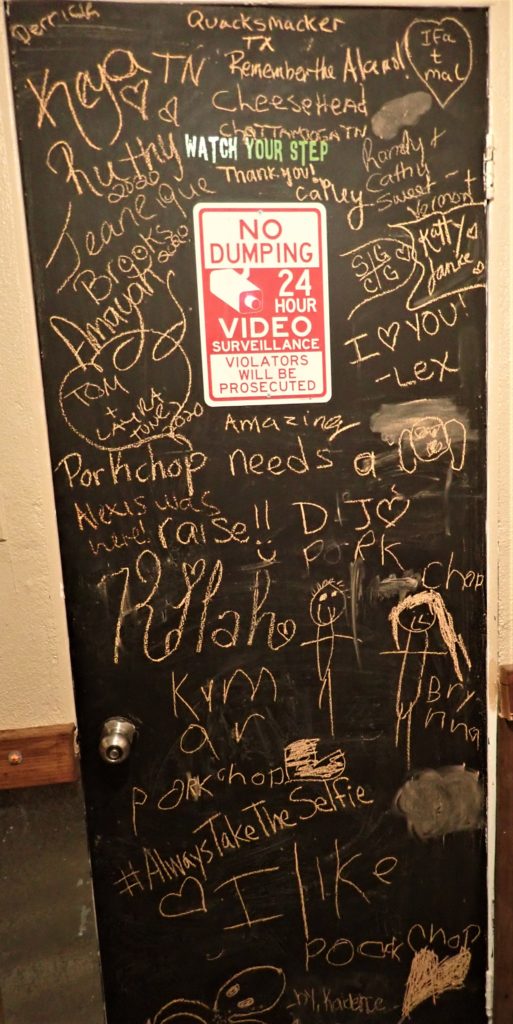 Derrick
Quacksmacker
TX
Kaya TN
Remember the Alamo!
IFa
+
mac
CheeseHead
CHATTANOOGA TN
Ruthy
2020
WATCH YOUR STEP
Thank you!
Calley
Randy +
Cathy
Sweet
Vermont
Jeaneque
Brooks
2020
NO
DUMPING
24
HOUR
VIDEO
SURVEILLANCE
VIOLATORS
WILL BE
PROSECUTED
SG
CG
Katty
Janice
Amayah
I ♡ YOU!
-Lex
TOM
+
LAURA
2020
Amazing
Porkchop needs a
raise!!
Alexis was
here!
DIJO
PORK
Chop
Kylah
Kym
ar
Bry
nna
porkchop
#AlwaysTakeTheSelfie
I like
porkchop
by, Kaidence